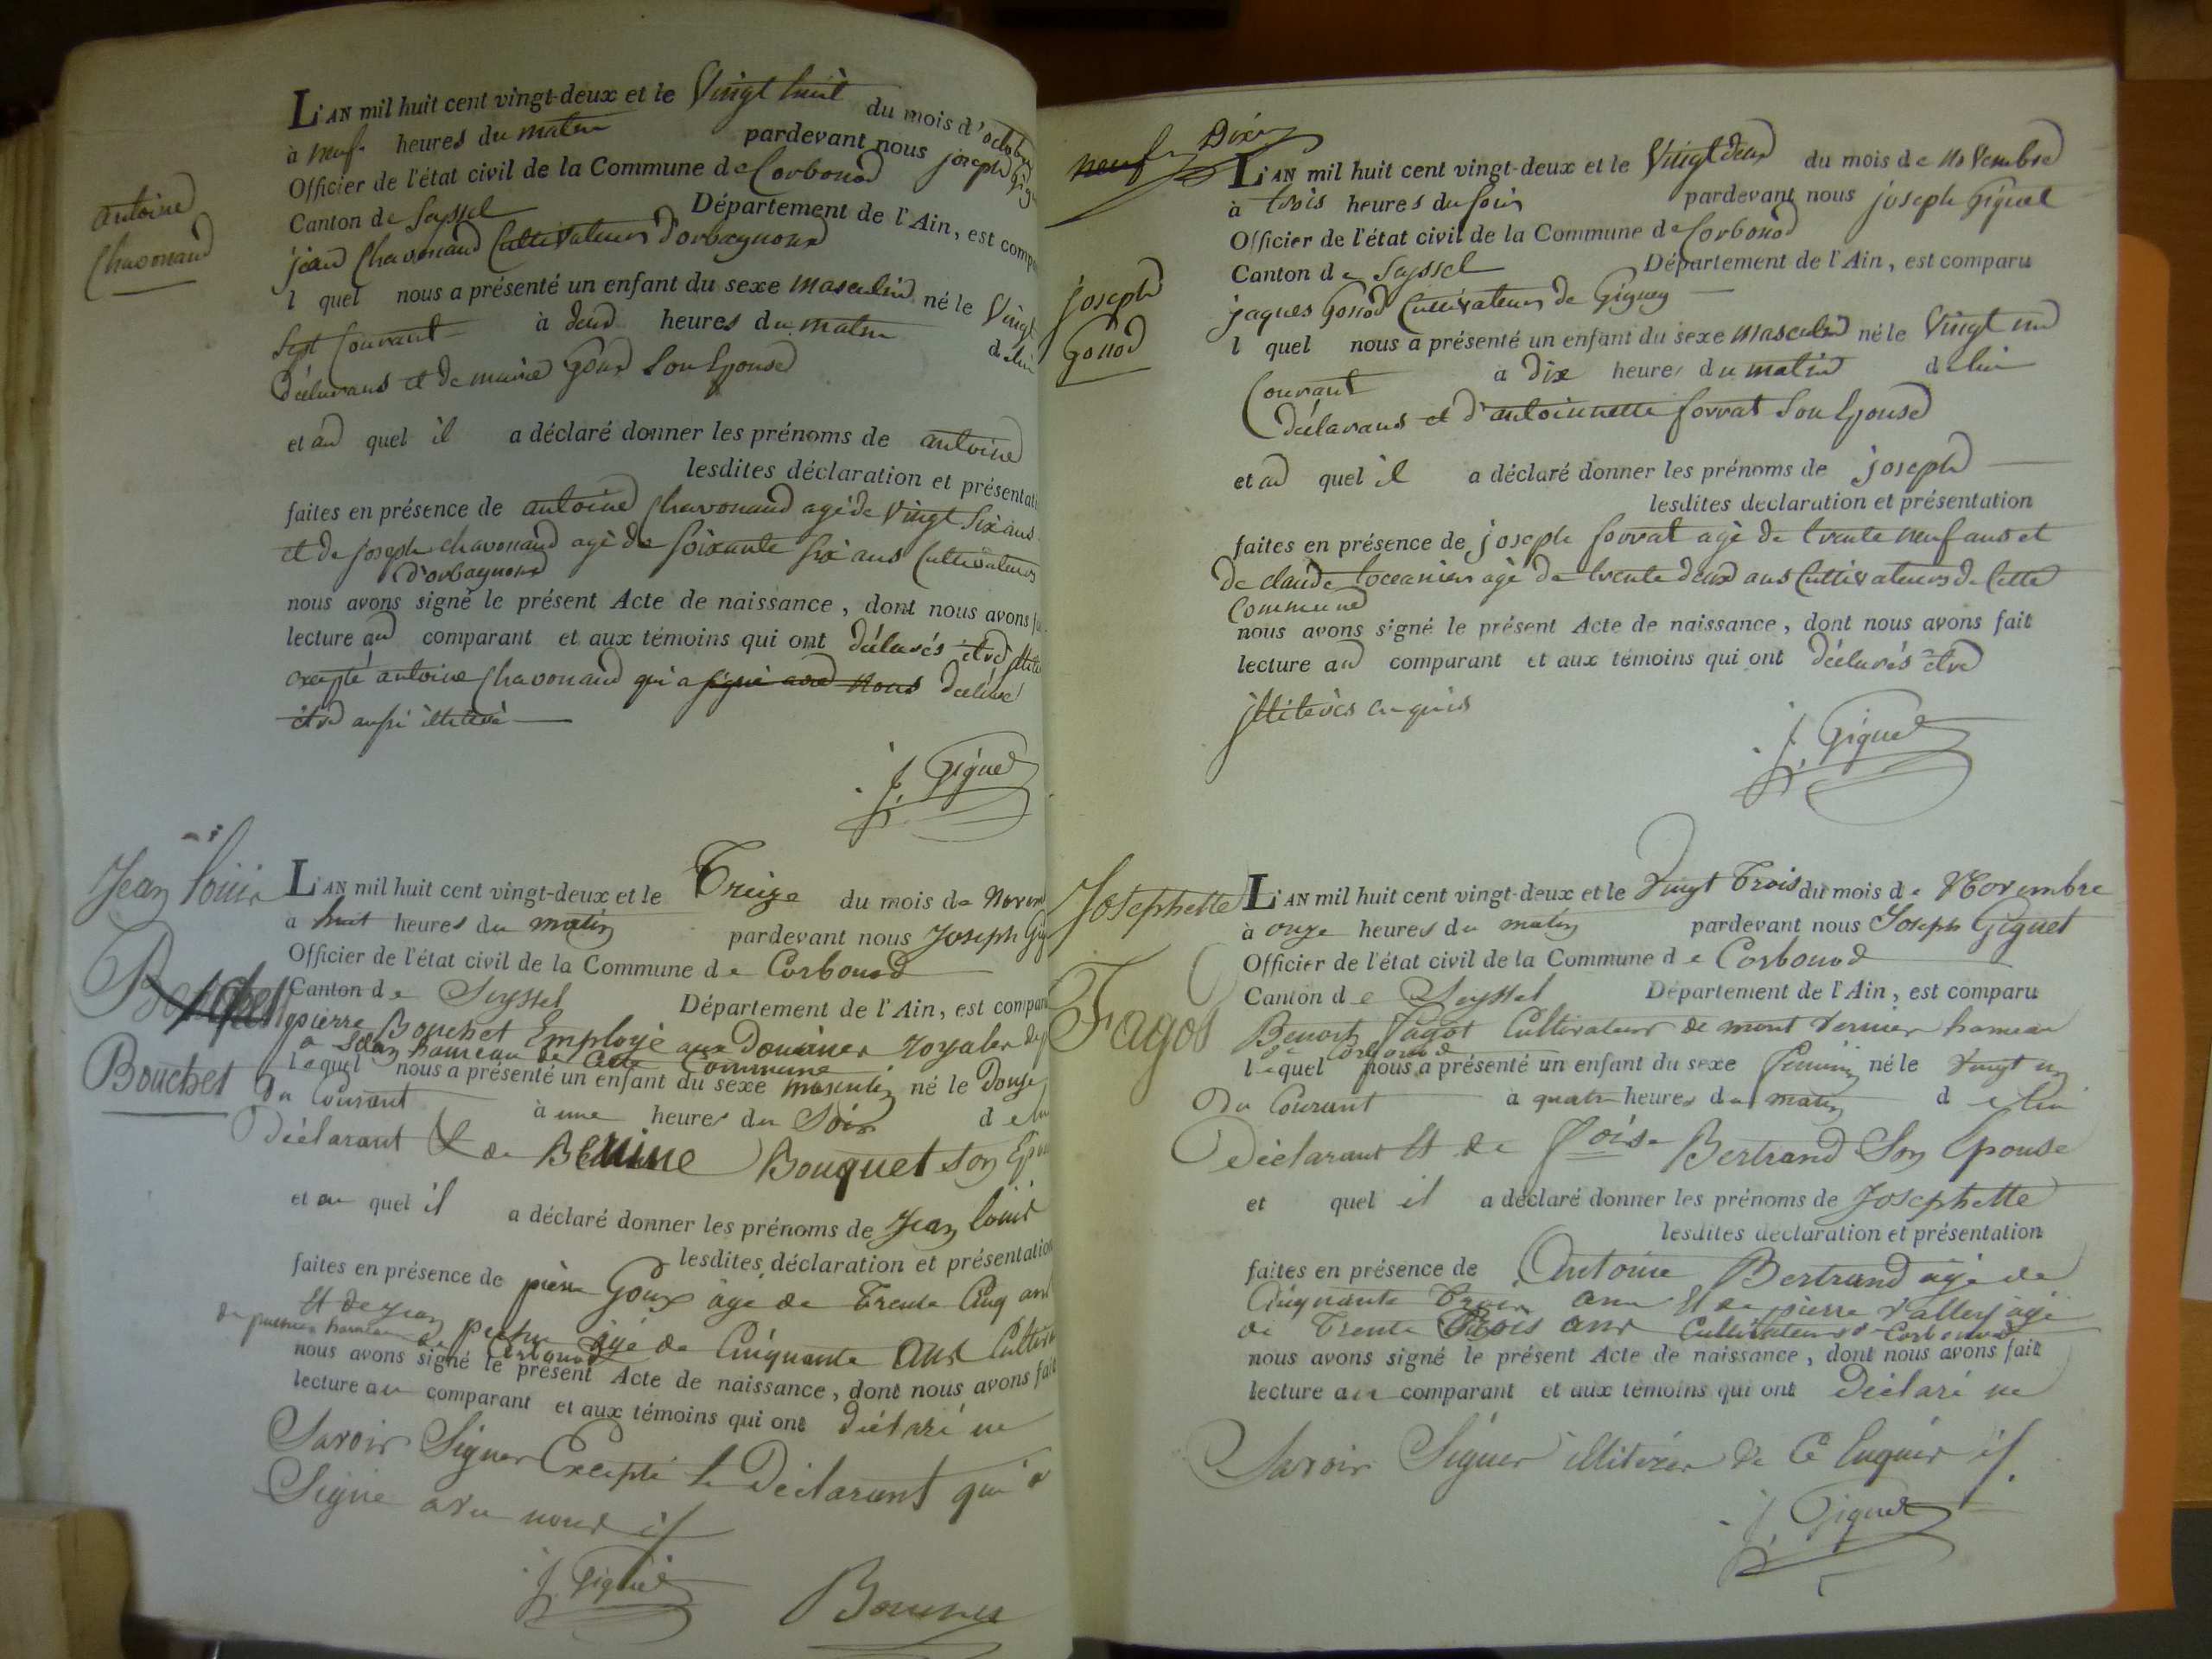 antoine
Chavonand
L'AN mil huit cent vingt-deux et le Vingt huit du mois d'octobre
à neuf heures du matin pardevant nous joseph Gig
Officier de l'état civil de la Commune de Corbonod
Canton de Seyssel Département de l'Ain, est compa
jean Chavonand Cultivateur d'orbagnoux
l quel nous a présenté un enfant du sexe masculin né le Vingt
Sept Courant à deux heures du matin de lui
déclarans et de marie Goux Son Epouse
et au quel il a déclaré donner les prénoms de antoine
lesdites déclaration et présentati
faites en présence de antoine Chavonand agé de Vingt Six ans
et de joseph chavonand agé de Soixante Six ans Cultivateurs
d'orbagnoux
nous avons signé le présent Acte de naissance, dont nous avons fa
lecture au comparant et aux témoins qui ont déclarés être illite
excepté antoine Chavonand qui a signé avec nous déclaré
être aussi illiteré
J. Giguet
Jean louis
Bouchet
L'AN mil huit cent vingt-deux et le Treize du mois de Novem
à huit heures du matin pardevant nous Joseph Gig
Officier de l'état civil de la Commune de Corbonod
Canton de Seyssel Département de l'Ain, est compar
pierre Bouchet Employé aux Douanes royales
a hameau de Cette Commune
lequel nous a présenté un enfant du sexe masculin né le Douze
Du Courant à une heures du Soir de lui
Déclarant & de Bouquet son Epouse
et au quel il a déclaré donner les prénoms de Jean louis
lesdites déclaration et présentation
faites en présence de pierre Goux âgé de Trente Cinq ans
Et de Jean âgé de Cinquante ans Cultiv
hameau de Corbonod
nous avons signé le présent Acte de naissance, dont nous avons fait
lecture au comparant et aux témoins qui ont Déclaré ne
Savoir Signer Excepté le Déclarant qui a
Signé avec nous
J. Giguet
neuf Dix
joseph
Gonod
L'AN mil huit cent vingt-deux et le Vingt deux du mois de novembre
à trois heures du soir pardevant nous joseph Giguet
Officier de l'état civil de la Commune de Corbonod
Canton de Seyssel Département de l'Ain, est comparu
jaques Gonod Cultivateur de Gigney
l quel nous a présenté un enfant du sexe masculin né le Vingt un
Courant à dix heures du matin de lui
déclarans et d'antoinette forrat Son Epouse
et au quel il a déclaré donner les prénoms de joseph
lesdites déclaration et présentation
faites en présence de joseph forrat agé de trente neuf ans et
de claude agé de trente deux ans Cultivateurs de Cette
Commune
nous avons signé le présent Acte de naissance, dont nous avons fait
lecture au comparant et aux témoins qui ont déclarés être
illiterés enquis
J. Giguet
Josephette
Fagot
L'AN mil huit cent vingt-deux et le Vingt Trois du mois de Novembre
à onze heures du matin pardevant nous Joseph Giguet
Officier de l'état civil de la Commune de Corbonod
Canton de Seyssel Département de l'Ain, est comparu
Benoit Fagot Cultivateur de mont vernier hameau
de Corbonod
lequel nous a présenté un enfant du sexe féminin né le vingt un
Du Courant à quatre heures du matin de lui
Déclarant Et de foise Bertrand Son Epouse
et quel il a déclaré donner les prénoms de Josephette
lesdites déclaration et présentation
faites en présence de Antoine Bertrand âgé de
Cinquante Trois ans Et de pierre vallet âgé
de Trente Trois ans Cultivateurs de Corbonod
nous avons signé le présent Acte de naissance, dont nous avons fait
lecture au comparant et aux témoins qui ont Déclaré ne
Savoir Signer illiterés de Ce Enquis
J. Giguet